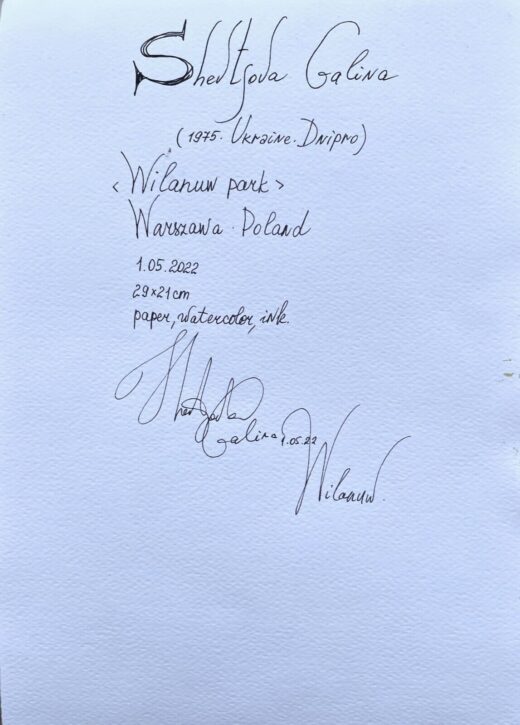 Shevtsova Galina
(1975. Ukraine. Dnipro)
<Wilanuw park>
Warszawa. Poland
1.05.2022
29x21cm
paper, watercolor, ink.
Shevtsova
Galina 1.05.22
Wilanuw.